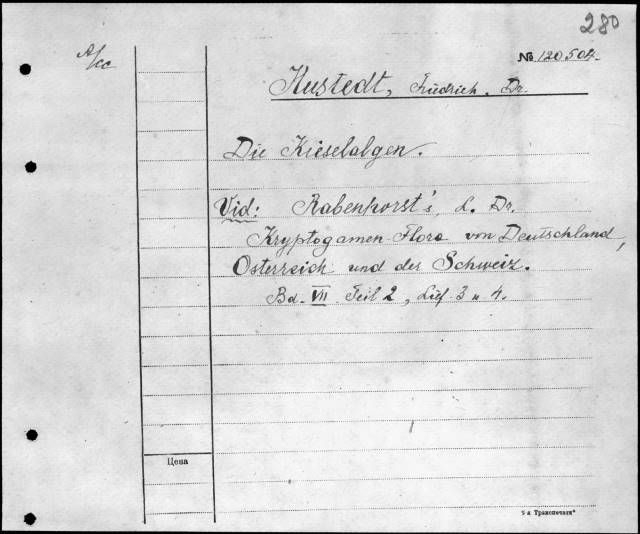 280
№ 120504.
Hustedt, Friedrich. Dr.
Die Kieselalgen.
Vid: Rabenhorst's, L. Dr.
Kryptogamen-Flora von Deutschland,
Österreich und der Schweiz.
Bd. VII Teil 2, Lief. 3 u 4.
Цена